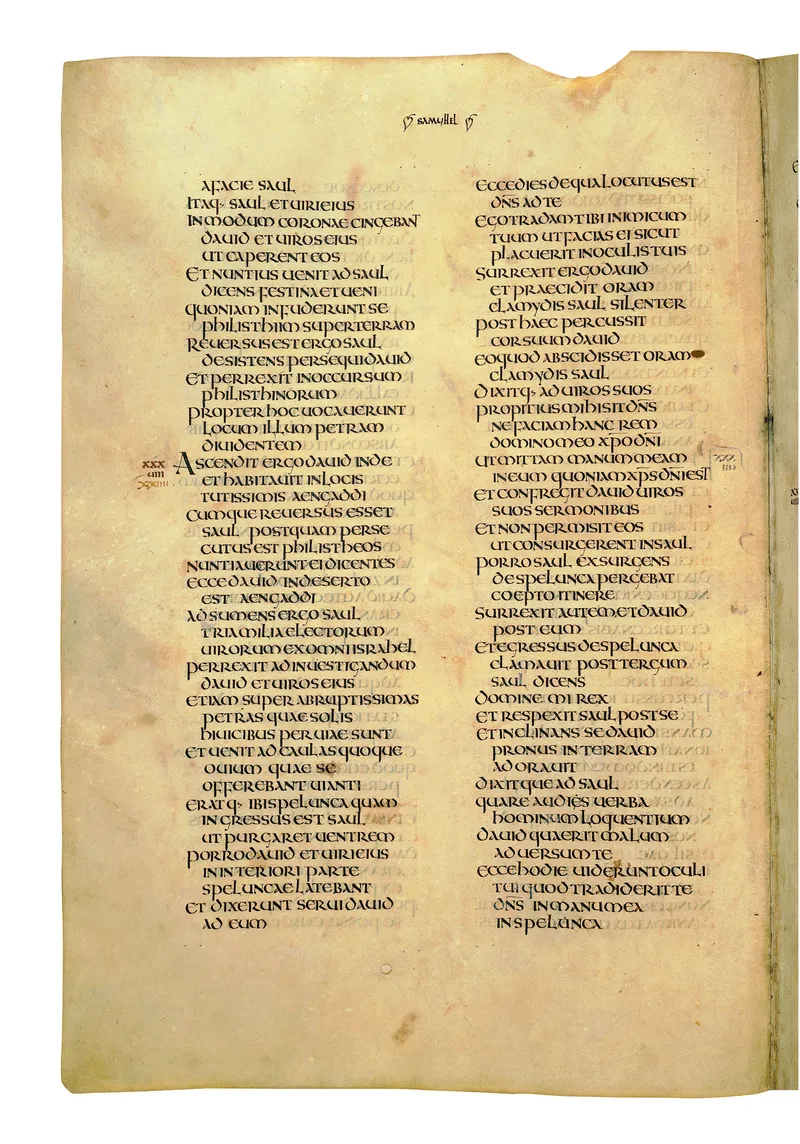 SAMUHEL
A FACIE SAUL
ITAQ· SAUL ET UIRI EIUS
IN MODUM CORONAE CINGEBANT
DAUID ET UIROS EIUS
UT CAPERENT EOS
ET NUNTIUS UENIT AD SAUL
DICENS FESTINA ET UENI
QUONIAM INFUDERUNT SE
PHILISTHIIM SUPER TERRAM
REUERSUS EST ERGO SAUL
DESISTENS PERSEQUI DAUID
ET PERREXIT IN OCCURSUM
PHILISTHINORUM
PROPTER HOC UOCAUERUNT
LOCUM ILLUM PETRAM
DIUIDENTEM
XXX
IIII
XXIIII
ASCENDIT ERGO DAUID INDE
ET HABITAUIT IN LOCIS
TUTISSIMIS AENGADDI
CUMQUE REUERSUS ESSET
SAUL POSTQUAM PERSE
CUTUS EST PHILISTHEOS
NUNTIAUERUNT EI DICENTES
ECCE DAUID IN DESERTO
EST AENGADDI
ADSUMENS ERGO SAUL
TRIA MILIA ELECTORUM
UIRORUM EX OMNI ISRAHEL
PERREXIT AD INUESTIGANDUM
DAUID ET UIROS EIUS
ETIAM SUPER ABRUPTISSIMAS
PETRAS QUAE SOLIS
HIUICIBUS PERUIAE SUNT
ET UENIT AD CAULAS QUOQUE
OUIUM QUAE SE
OFFEREBANT UIANTI
ERATQ· IBI SPELUNCA QUAM
INGRESSUS EST SAUL
UT PURGARET UENTREM
PORRO DAUID ET UIRI EIUS
IN INTERIORI PARTE
SPELUNCAE LATEBANT
ET DIXERUNT SERUI DAUID
AD EUM
ECCE DIES DE QUA LOCUTUS EST
DN̅S AD TE
EGO TRADAM TIBI INIMICUM
TUUM UT FACIAS EI SICUT
PLACUERIT IN OCULIS TUIS
SURREXIT ERGO DAUID
ET PRAECIDIT ORAM
CLAMYDIS SAUL SILENTER
POST HAEC PERCUSSIT
COR SUUM DAUID
EO QUOD ABSCIDISSET ORAM
CLAMYDIS SAUL
DIXITQ· AD UIROS SUOS
PROPITIUS MIHI SIT DN̅S
NE FACIAM HANC REM
DOMINO MEO XP̅O DN̅I
UT MITTAM MANUM MEAM
XXX
IIII
IN EUM QUONIAM XP̅S DN̅I EST
ET CONFREGIT DAUID UIROS
SUOS SERMONIBUS
ET NON PERMISIT EOS
UT CONSURGERENT IN SAUL
PORRO SAUL EXSURGENS
DE SPELUNCA PERGEBAT
COEPTO ITINERE
SURREXIT AUTEM ET DAUID
POST EUM
ET EGRESSUS DE SPELUNCA
CLAMAUIT POST TERGUM
SAUL DICENS
DOMINE MI REX
ET RESPEXIT SAUL POST SE
ET INCLINANS SE DAUID
PRONUS IN TERRAM
ADORAUIT
DIXITQUE AD SAUL
QUARE AUDIES UERBA
HOMINUM LOQUENTIUM
DAUID QUAERIT MALUM
ADUERSUM TE
ECCE HODIE UIDERUNT OCULI
TUI QUOD TRADIDERIT TE
DN̅S IN MANU MEA
IN SPELUNCA